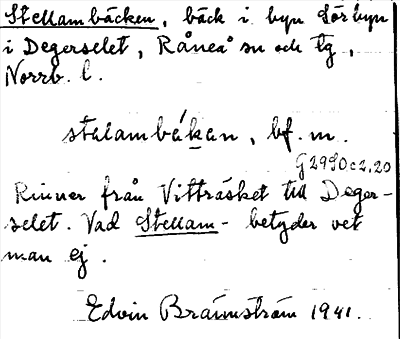 Stellambäcken, bäck i byn Sörbyn
i Degerselet, Råneå sn och tg,
Norrb. l.
stälambäkan, bf. m.
G2990.c2.20
Rinner från Vitträsket till Deger-
selet. Vad Stellam- betyder vet
man ej.
Edvin Brännström 1941.